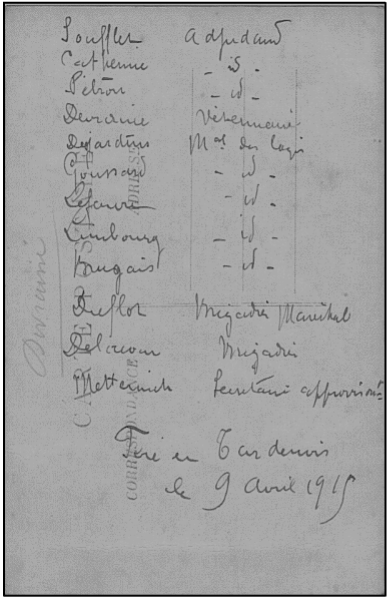 Soufflet Adjudant
Catherine - id -
Pétron - id -
Devraine Vétérinaire
Dejardins Mal des logis
Goussard - id -
Lefauve - id -
Limbourg - id -
Baugais - id -
Duflot Brigadier Maréchal
Delacour Brigadier
Metternich Secrétaire approvisiont
Fère en Tardenois
le 9 Avril 1915
Devraine
CORRESPONDANCE
ADRESSE